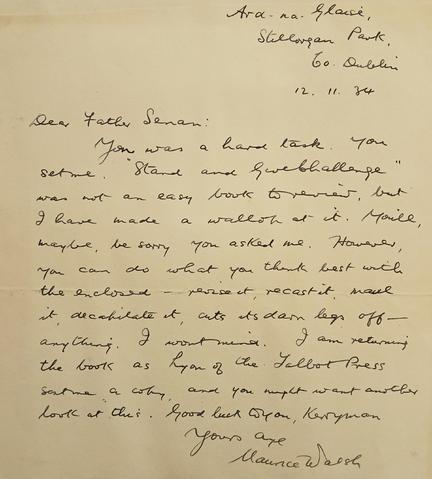 Ard-na-Glaise,
Stillorgan Park,
Co. Dublin
12. 11. 34
Dear Father Senan:
You was a hard task. You
set me. "Stand and Give Challenge"
was not an easy book to review, but
I have made a wallop at it. You'll,
maybe, be sorry you asked me. However,
you can do what you think best with
the enclosed – revise it, recast it, maul
it, decapitate it, cuts its darn legs off –
anything. I wont mind. I am returning
the book as Lyon of the Talbot Press
sent me a copy, and you might want another
look at this. Good luck to you, Kerryman
Yours aye
Maurice Walsh